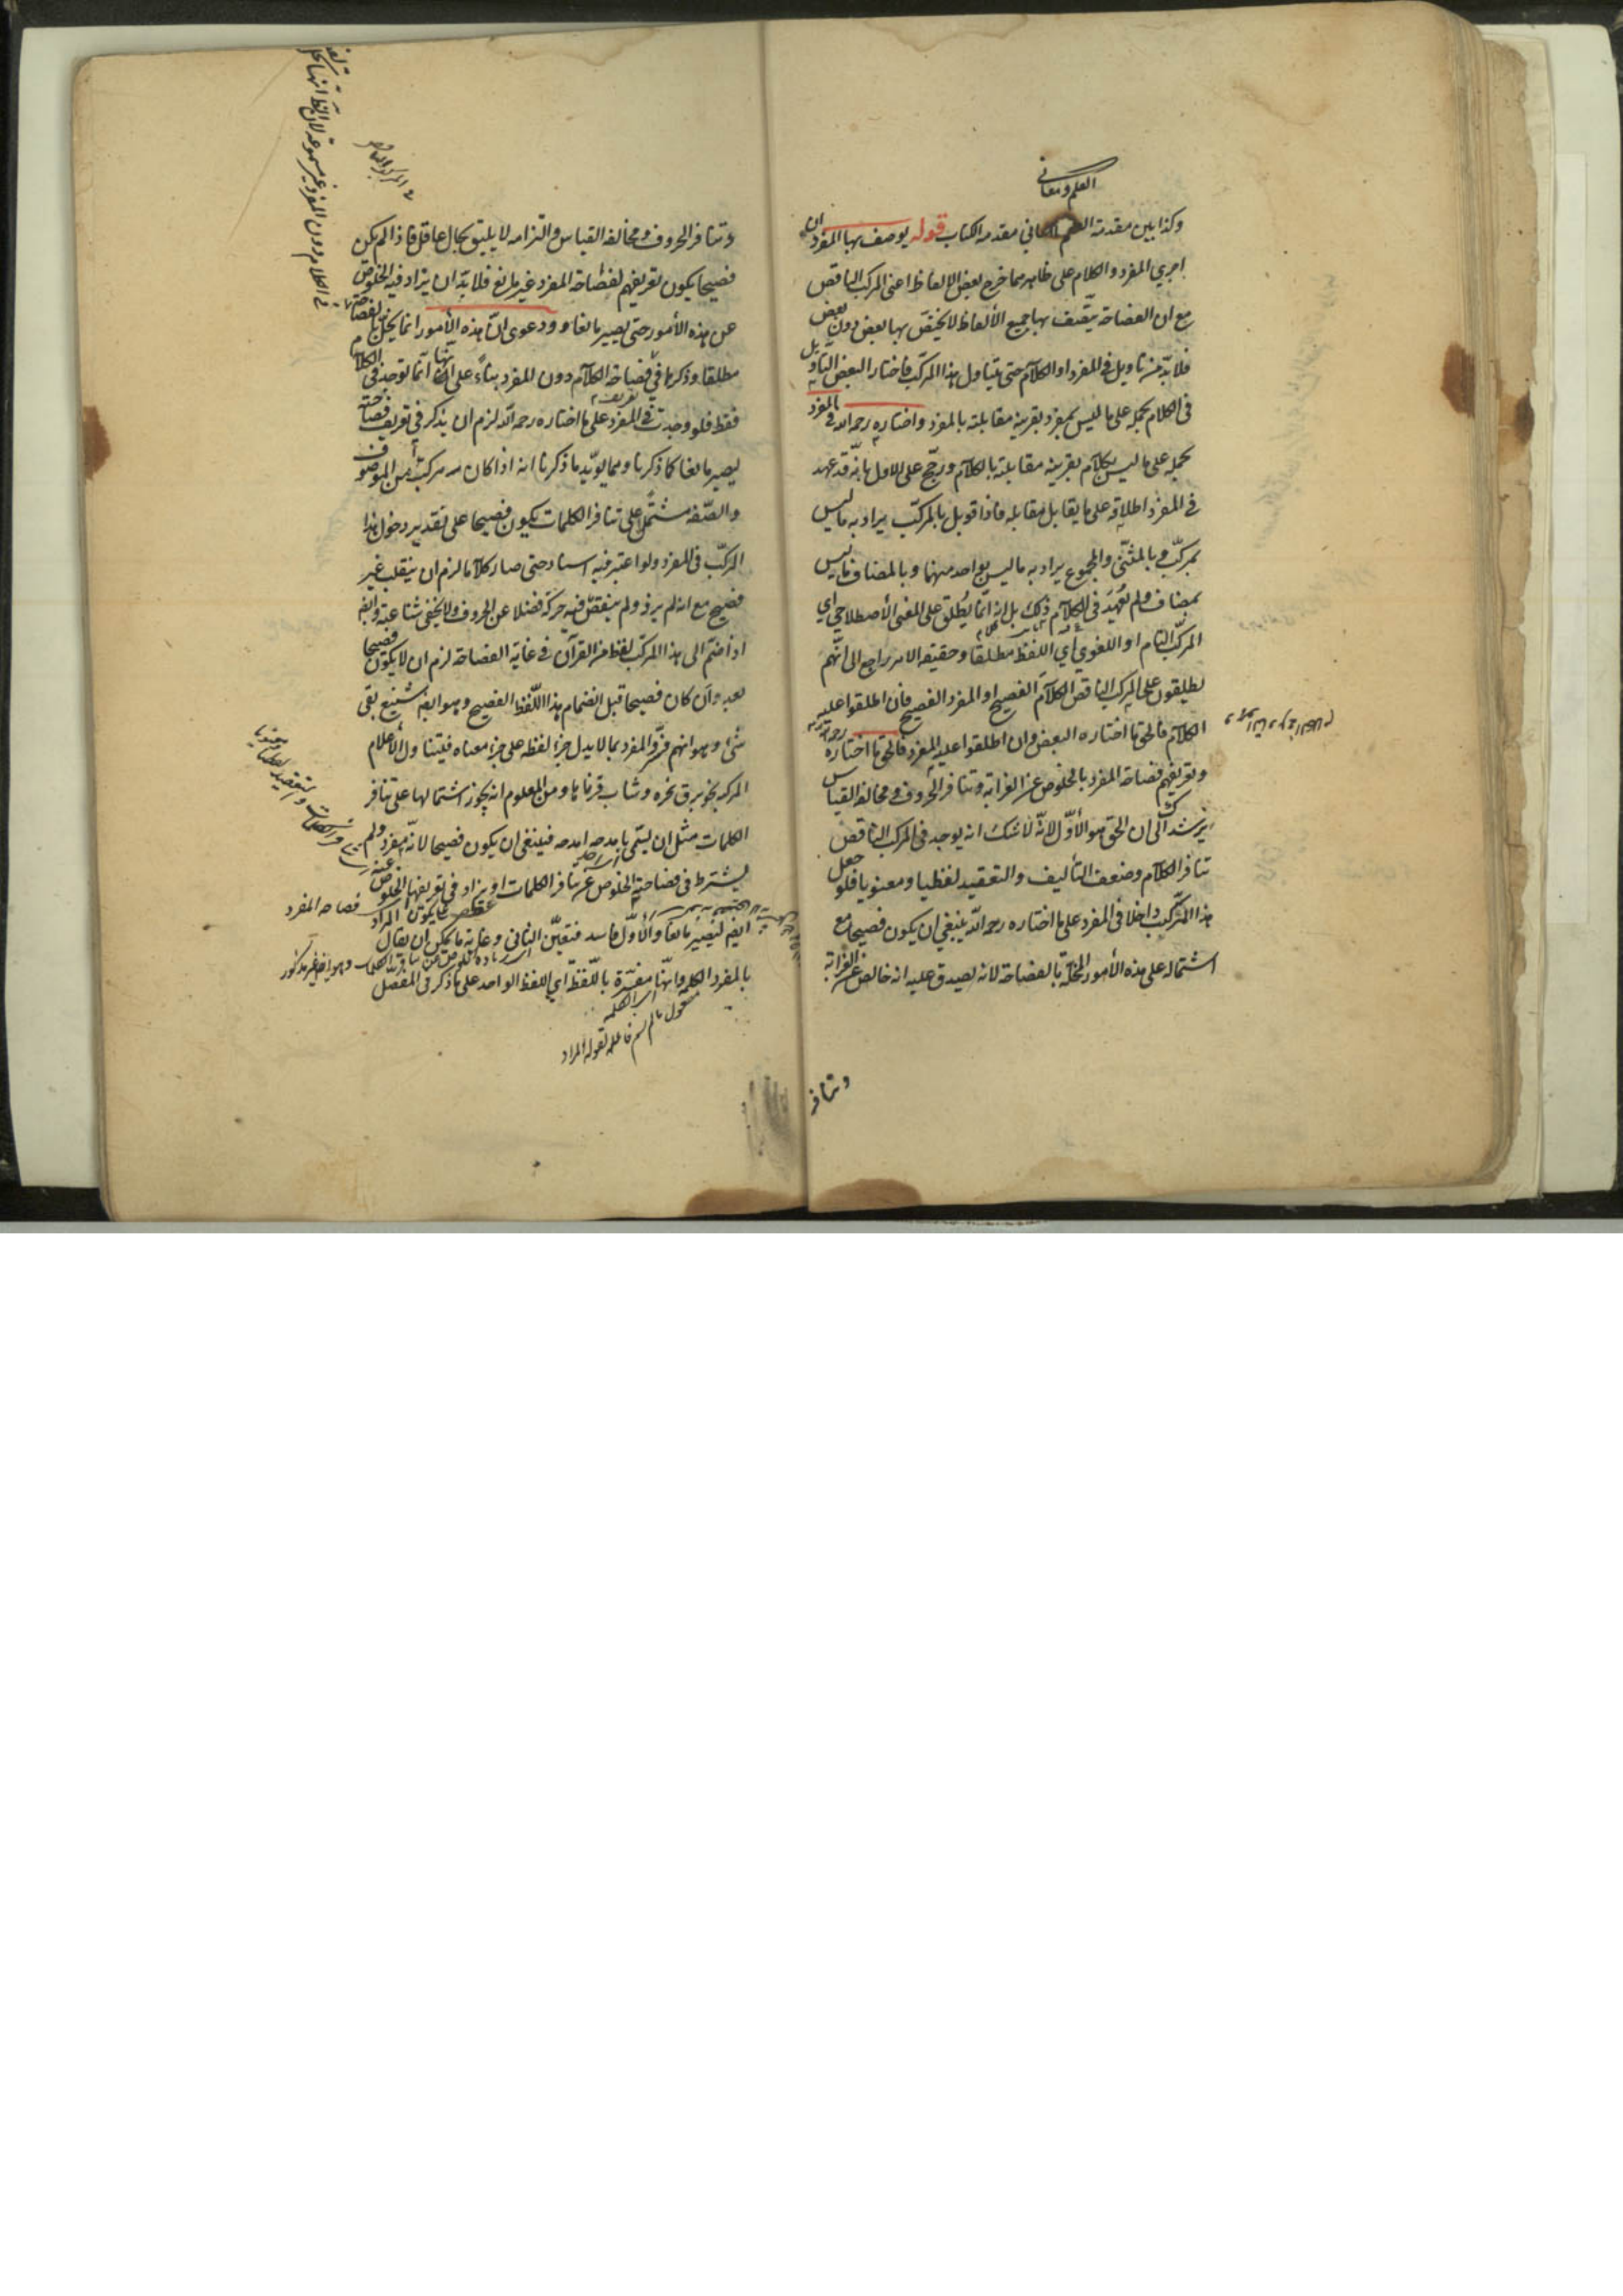 العلم ومعانى
وكذا بين مقدمة العلم مقدمه الكتاب قوله يوصف بها المفرد ان
اجري المفرد والكلام على ظاهرهما خرج بعض الالفاظ اعنى المركب الناقص
مع ان الفصاحة يتّصف بها جميع الألفاظ لا يختصّ بها بعض دون بعض
فلا بدّ من تاويل فى المفرد او الكلام حتى يتناول هذا المركّب فاختار البعض التأويل
فى الكلام بحمله على ما ليس بمفرد بقرينة مقابلته بالمفرد واختاره رحمه الله فى المفرد
بحمله على ما ليس بكلام بقرينه مقابلته بالكلام ورجّح على الاول بانّه قد عهد
فى المفرد اطلاقه على ما يقابل مقابله فاذا قوبل بالمركّب يراد به ما ليس
بمركّب وبالمثنّى والمجموع يراد به ما ليس بواحد منهما وبالمضاف ما ليس
بمضاف ولم يعهد فى الكلام ذلك بل انه انّما يُطلق على المعنى الأصطلاحي اي
المركّب التام او اللغوي أي اللفظ مطلقا وحقيقه الامر راجع الى انّهم
يطلقون على المركب الناقص الكلام الفصيح او المفرد الفصيح فان اطلقوا عليه
الكلام فالحق ما اختاره البعض وان اطلقوا عليه المفرد فالحق ما اختاره رحمه الله
وتعريفهم فصاحة المفرد بالخلوص عن الغرابة وتنافر الحروف ومخالفة القياس
يرشدك الى ان الحق هو الأوّل لانّه لا شك انه يوجد فى المركب الناقص
تنافر الكلام وضعف التأليف والتعقيد لفظيا ومعنويا فلو جعل
هذا المركّب داخلا فى المفرد على ما اختاره رحمه الله ينبغي ان يكون فصيحا مع
اشتماله على هذه الأمور المخلّة بالفصاحة لانه يصدق عليه انه خالص عن الغرابة
وتنافر
وتنافر الحروف ومخالفه القياس والتزامه لا يليق بحال عاقل فاذا لم يكن
فصيحا يكون تعريفهم لفصاحة المفرد غير مانع فلا بدّ ان يزاد فيه الخلوص
عن هذه الأمور حتى يصير مانعا ودعوى انّ هذه الأمور انما يخلّ بفصاحة الكلام
مطلقا وذكرها فى فصاحة الكلام دون المفرد بناءً على انها انّما توجد فى الكلام
فقط فلو وجدت فى المفرد على ما اختاره رحمه الله لزم ان يذكر فى تعريف فصاحته
ليصير مانعا كما ذكرنا ومما يؤيّد ما ذكرنا انه اذا كان مركب من الموصوف
والصّفه مشتمل على تنافر الكلمات يكون فصيحا على تقدير دخول هذا
المركّب فى المفرد ولو اعتبر فيه اسناد حتى صار كلاما لزم ان ينقلب غير
فصيح مع انه لم يزد ولم ينقص فيه حركة فضلا عن الحروف ولا يخفى شناعته وايضا
اذا ضمّ الى هذا المركّب لفظ من القرآن فى غاية الفصاحة لزم ان لا يكون فصيحا
بعد وان كان فصيحا قبل انضمام هذا اللّفظ الفصيح وهو ايضا شنيع بقى
شئ وهو انهم فسّروا المفرد بما لا يدل جزء لفظه على جزء معناه فيتناول الأعلام
المركبه نحو برق نحره وشاب قرناها ومن المعلوم انه يجوز اشتمالها على تنافر
الكلمات مثل ان يسّمى بامدحه امدحه فينبغى ان يكون فصيحا لانّه مفرد ولم
يشترط فى فصاحته الخلوص عن تنافر الكلمات او يزاد فى تعريفها الخلوص عنه
ايضا ليصير مانعا والأوّل فاسد فتعيّن الثانى وغاية ما يمكن ان يقال
بالمفرد الكلمه وانّها مفسّرة باللّفظة اي اللفظ الواحد على ما ذكر فى المفصّل
فصاحه المفرد
وهو ايضا غير مذكور